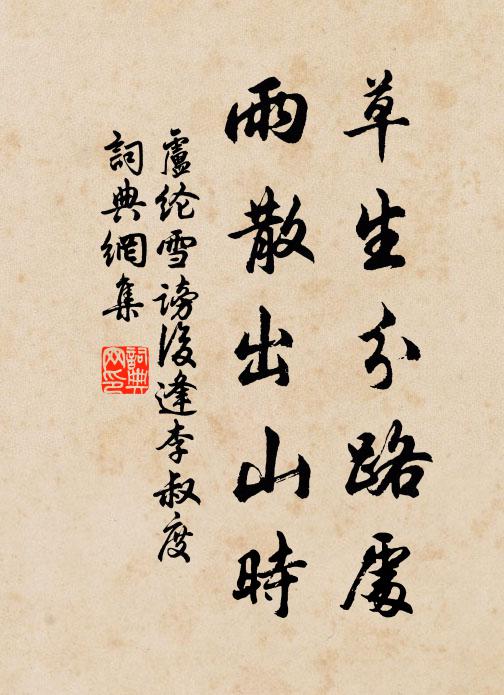 草生分路處
雨散出山時
盧纶雪謗後逢李叔度
詞典網集
詞典网印